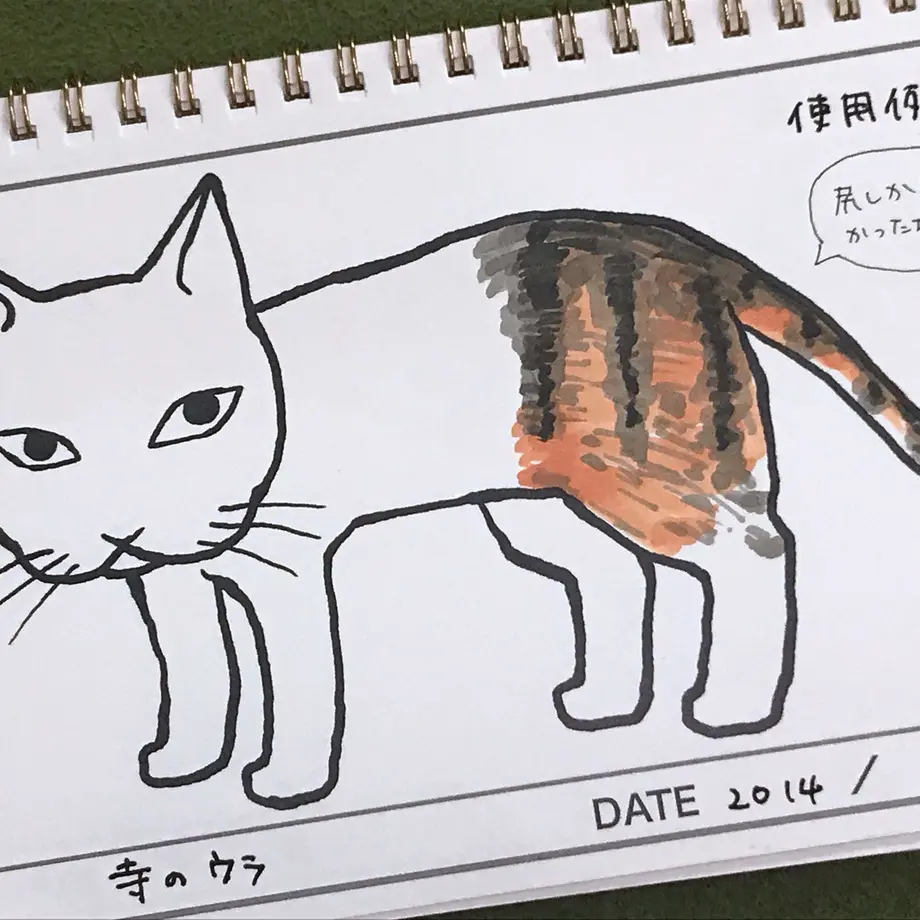 使用例
尻しか
かったた
DATE 2014 /
寺のウラ